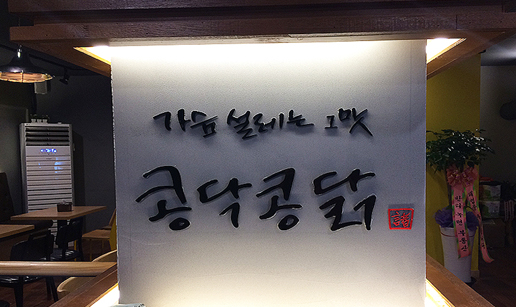 가슴 설레는 그맛
콩닥콩닭